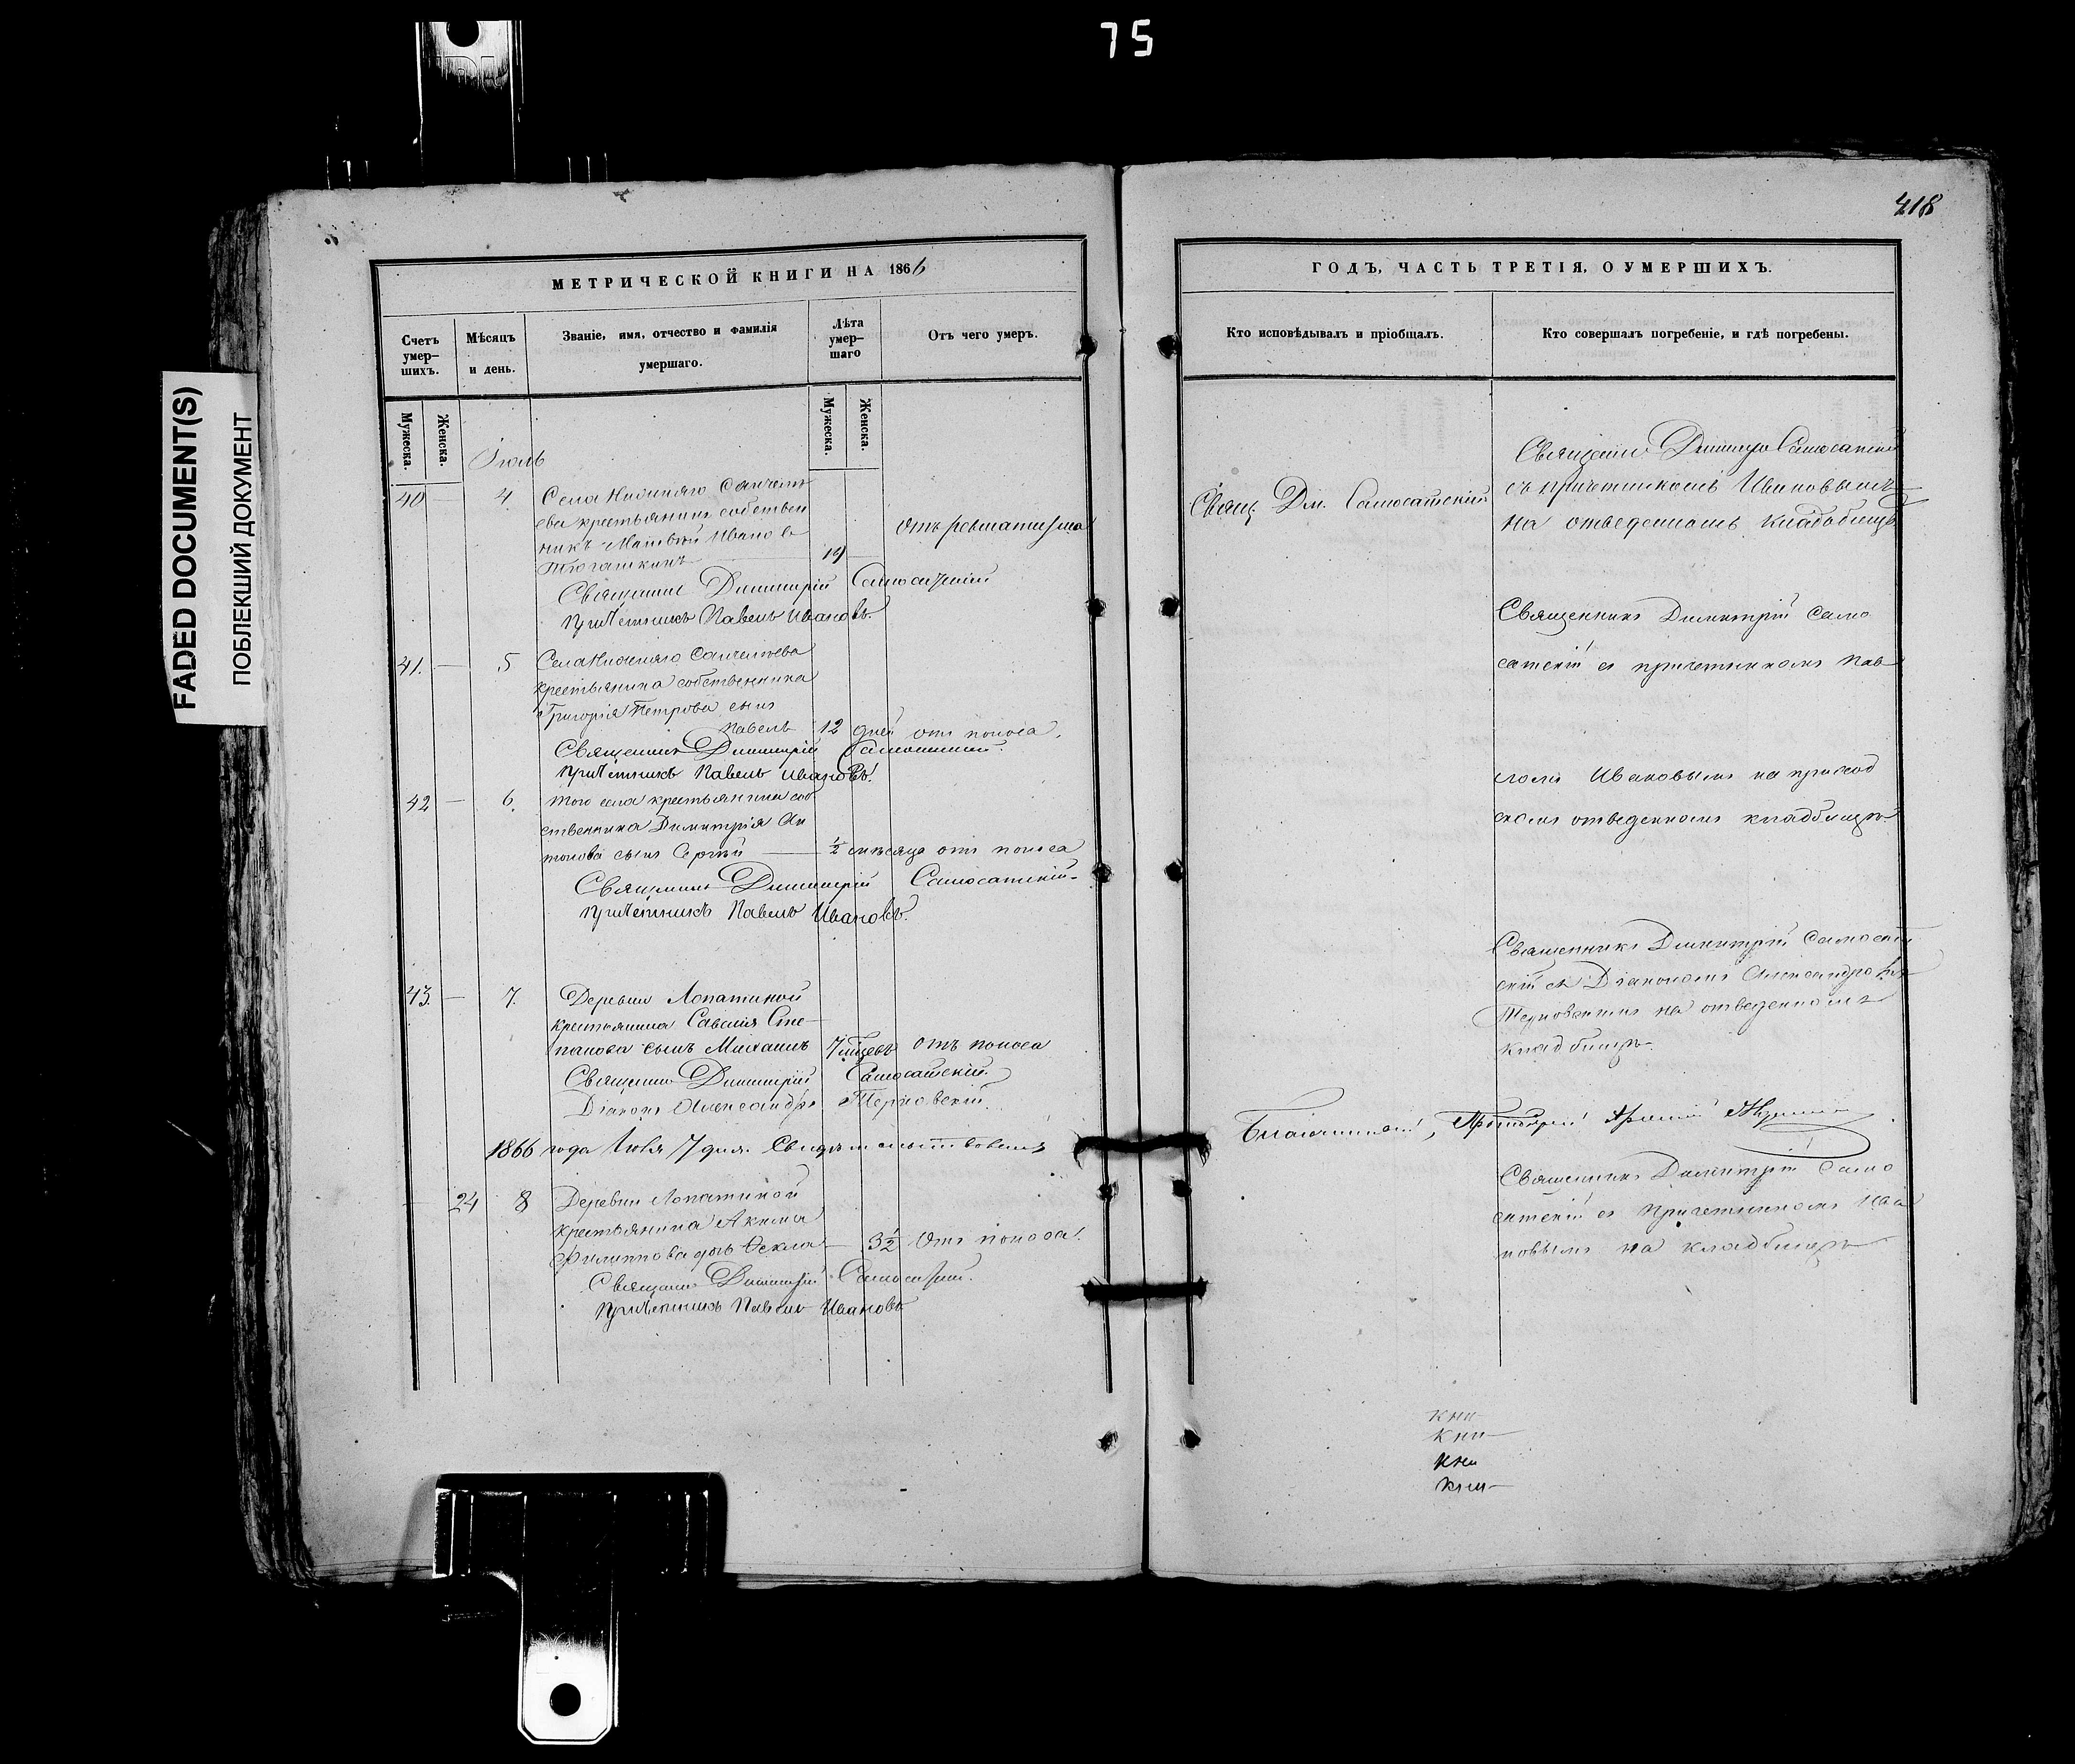 75
FADED DOCUMENT(S)
ПОБЛЕКШИЙ ДОКУМЕНТ
418
МЕТРИЧЕСКОЙ КНИГИ НА 1866
Счетъ умер-шихъ.
Мѣсяцъ и день.
Званіе, имя, отчество и фамилія умершаго.
Лѣта умер-шаго
Отъ чего умеръ.
Мужеска.
Женска.
Мужеска.
Женска.
Іюль
40 — 4. Села Нижняго Санчелѣ
ева крестьянинъ собствен
никъ Матвѣй Иванов
19 — отъ ревматизма
Священникъ Димитрій Самосатскій
Причетникъ Павелъ Ивановъ.
41. — 5 Села Нижняго Санчелѣева
крестьянина собственника
Григорія Петрова сынъ
Павелъ 12 дней отъ поноса.
Священникъ Димитрій Самосатскій.
Причетникъ Павелъ Ивановъ.
42 — 6. того села крестьянина соб
ственника Димитрія Ан
тонова сынъ Сергѣй — ½ мѣсяца отъ поноса
Священникъ Димитрій Самосатскій.
Причетникъ Павелъ Ивановъ.
43. — 7. Деревни Лопатиной
крестьянина Савелія Сте
панова сынъ Михаилъ 7 мцевъ отъ поноса
Священникъ Димитрій Самосатскій.
Діаконъ Александръ Терновскій.
1866 года Іюля 7 дня. Свидѣтельствовалъ
24 8 Деревни Лопатиной
крестьянина Акима
Филиппова дочь Ѳекла — 3½ отъ поноса.
Священникъ Димитрій Самосатскій.
Причетникъ Павелъ Ивановъ
ГОДЪ, ЧАСТЬ ТРЕТІЯ, О УМЕРШИХЪ.
Кто исповѣдывалъ и пріобщалъ.
Кто совершалъ погребеніе, и гдѣ погребены.
Свящ. Дм. Самосатскій
Священникъ Димитрій Самосатскій
съ причетникомъ Ивановымъ
на отведенномъ кладбищѣ
Священникъ Димитрій Само
сатскій съ причетникомъ Пав
ломъ Ивановымъ на приход
скомъ отведенномъ кладбищѣ.
Священникъ Димитрій Самосат
скій съ Діакономъ Александромъ
Терновскимъ на отведенномъ
кладбищѣ.
Благочинный, Протоіерей
Священникъ Димитрій Само
сатскій съ причетникомъ Ива
новымъ на кладбищѣ
кни
кни
кни
кни